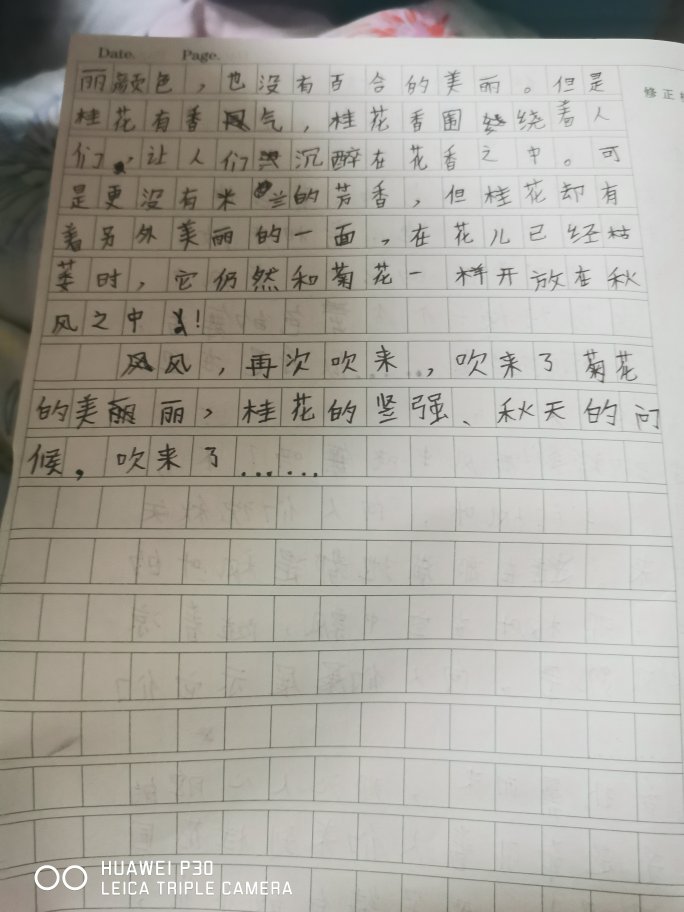 Date. Page.
修正
丽颜色，也没有百合的美丽。但是
桂花有香气，桂花香围绕着人
们，让人们沉醉在花香之中。可
是更没有米兰的芳香，但桂花却有
着另外美丽的一面，在花儿已经枯
萎时，它仍然和菊花一样开放在秋
风之中！
风，再次吹来，吹来了菊花
的美丽，桂花的坚强、秋天的问
候，吹来了……
HUAWEI P30
LEICA TRIPLE CAMERA